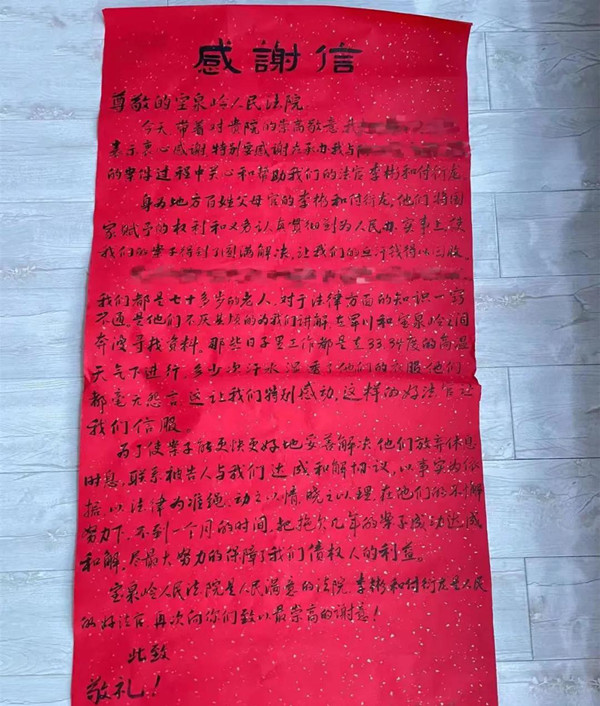 感謝信
尊敬的宝泉岭人民法院
今天带着对贵院的崇高敬意我
表示衷心感谢特别要感谢在承办我与
的案件过程中关心和帮助我们的法官李彬和付衍龙
身为地方百姓父母官的李彬和付衍龙，他们将国
家赋予的权利和义务认真贯彻到为人民办实事上，使
我们的案子得到了圆满解决，让我们的血汗钱得以回收。
我们都是七十多岁的老人，对于法律方面的知识一窍
不通。是他们不厌其烦的为我们讲解，在军川和宝泉岭之间
奔波寻找资料。那些日子里工作都是在33.34度的高温
天气下进行，多少次汗水湿透了他们的衣服他们
都毫无怨言这让我们特别感动，这样的好法官让
我们信服
为了使案子能更快更好地妥善解决他们放弃休息
时息，联系被告人与我们达成和解协议，以事实为依
据，以法律为准绳，动之以情，晓之以理，在他们的不懈
努力下，不到一个月的时间，把拖欠几年的案子成功达成
和解，尽最大努力的保障了我们债权人的利益。
宝泉岭人民法院是人民满意的法院，李彬和付衍龙是人民
的好法官，再次向你们致以最崇高的谢意！
此致
敬礼！